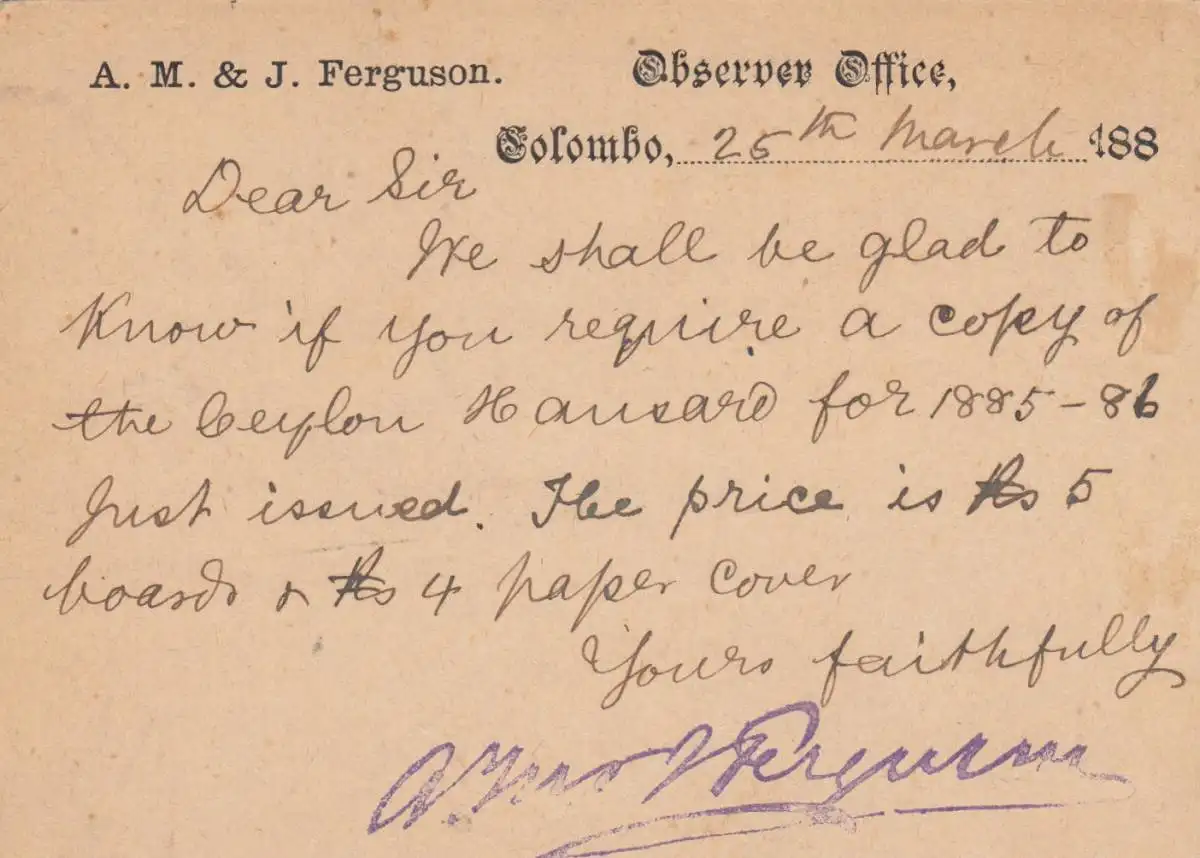 A. M. & J. Ferguson. Observer Office,
Colombo, 25th March 188
Dear Sir
We shall be glad to
Know if you require a copy of
the Ceylon Hansard for 1885-86
Just issued. The price is Rs 5
boards & Rs 4 paper cover
Yours faithfully
A. M. & J. Ferguson